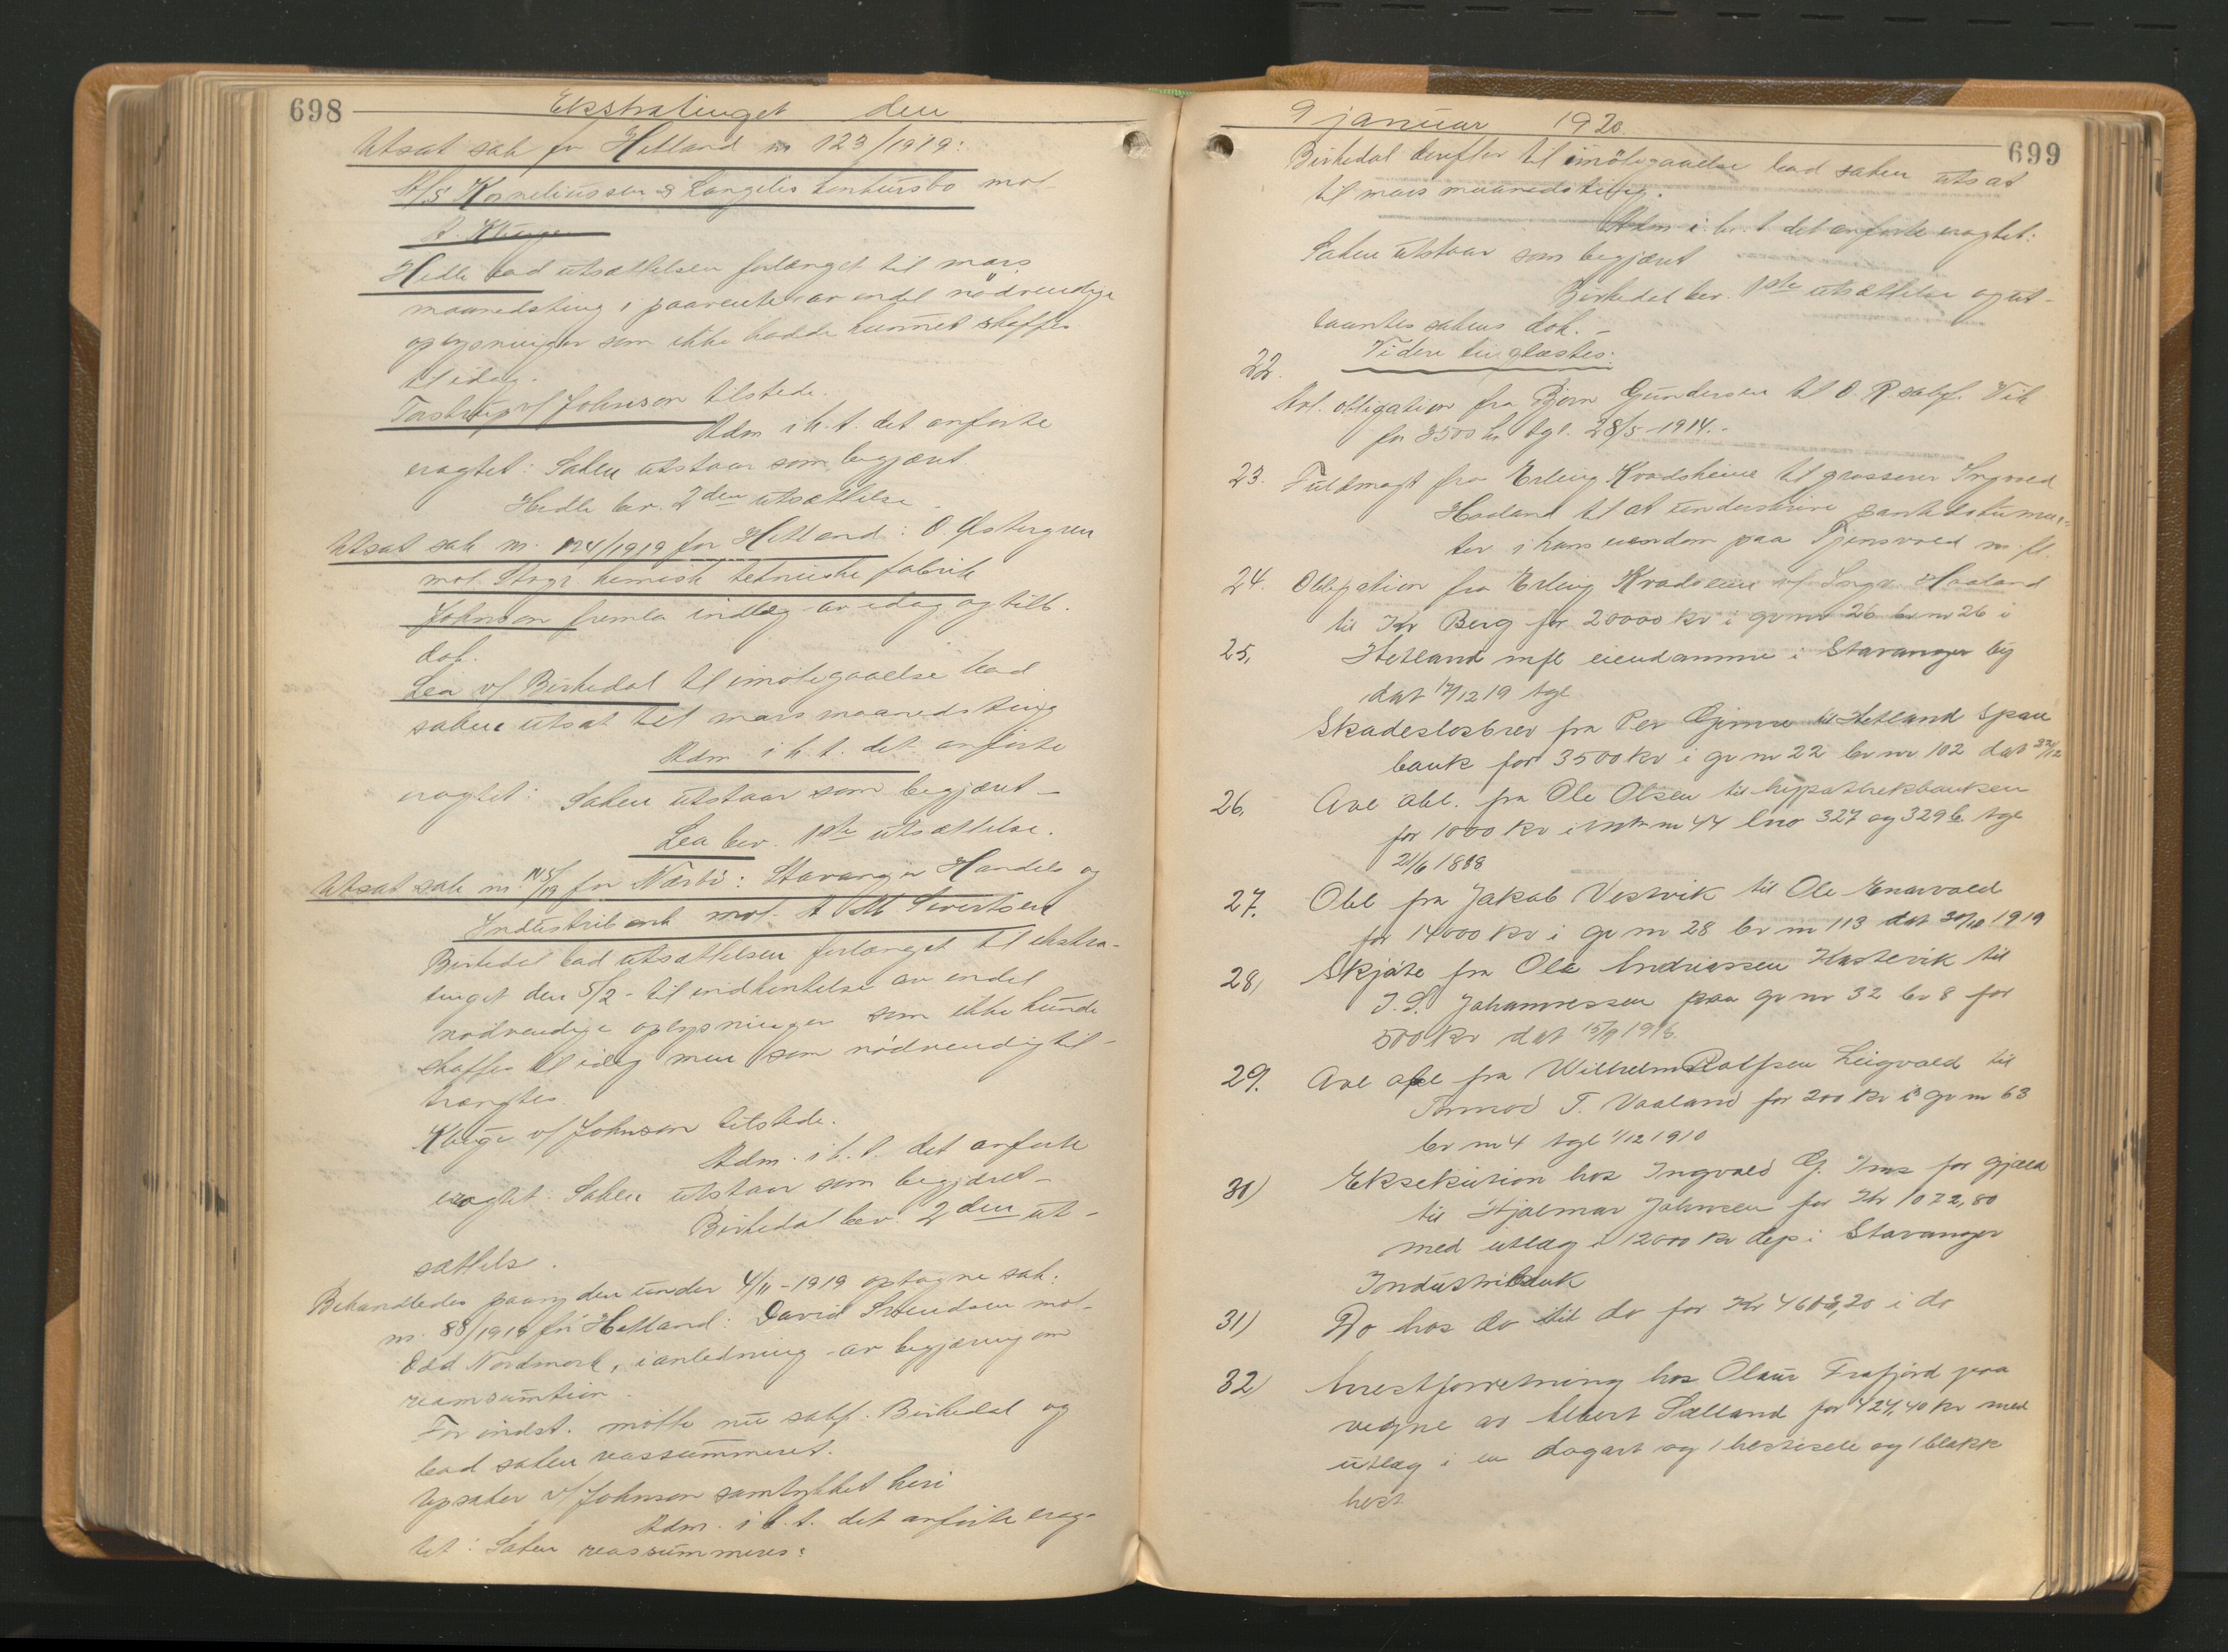 698
Ekstratinget den
Utsat sak for Hetland nr 123/1919:
A/S Korneliussen & Langelis konkursbo mot
A. Kluge
Hedle bad utsættelsen forlænget til mars
maanedsting i paavente av endel nödvendige
oplysninger som ikke hadde kunnet skaffes
til idag.
Tastrup v/ Johnson tilstede.
Adm i h. t. det anførte
eragtet: Saken utstaar som begjæret.
Hedle bev. 2den utsættelse.
Utsat sak nr. 124/1919 for Hetland: O. Østergren
mot Stvgr. kemisk tekniske fabrik
Johnson fremla indlæg av idag og tilb.
dok.
Lea v/ Birkedal til imötegaaelse bad
saken utsat til mars maanedsting
Adm. i h. t. det anførte
eragtet: Saken utstaar som begjæret -
Lea bev. 1ste utsættelse.
Utsat sak nr. 115/19 for Nærbö: Stavanger Handels og
Industribank mot A M Sivertsen
Birkedal bad utsættelsen forlænget til ekstra-
tinget den 5/2 - til indhentelse av endel
nödvendige oplysninger som ikke kunde
skaffes til idag men som nödvendig til-
trængtes.
Kluge v/ Johnson tilstede.
Adm. i h. t. det anførte
eragtet: Saken utstaar som begjæret -
Birkedal bev. 2den ut-
sættelse.
Behandledes paany den under 4/11-1919 optagne sak:
nr. 88/1919 for Hetland: David Svendsen mot
Odd Nordmark, i anledning av begjæring om
reamsumtion.
For indst. møtte nu sakf. Birkedal og
bad saken reassummeret.
Opsater v/ Johnson samtykket heri
Adm. i h. t. det anførte erag-
tet: Saken reassummeres:
9 januar 1920.
699
Birkedal derefter til imötegaaelse bad saken utsat
til mars maanedsting.
Adm i h. t. det anførte eragtet:
Saken utstaar som begjæret
Birkedal bev. 1ste utsættelse og ut-
laantes sakens dok. -
Videre tinglæstes:
22.
Avl. obligation fra Bjørn Gundersen til O. R. sakf. Vik
for 3500 kr tgl. 28/5 1914.
23. Fuldmagt fra Erling Kvadsheim til grosserer Ingvald
Haaland til at underskrive pantedokumen-
ter i hans eiendom paa Tjensvold m. fl.
24. Obligation fra Erling Kvadsheim v/ Ingv. Haaland
til Kr Berg for 20000 kr i gr nr 26 br nr 26 i
25. Hetland mfl eiendomme i Stavanger by
dat 17/12 19 tgl
Skadeslosbrev fra Per Gjimse til Hetland Spare
bank for 3500 kr i gr nr 22 br nr 102 dat 22/12
26. Avl obl. fra Ole Olsen til hypothekbanken
for 1000 kr i mtr nr 44 lno 327 og 329 b tgl
21/6 1888
27. Obl fra Jakob Vestvik til Ole Enarvold
for 14000 kr i gr nr 28 br nr 113 dat 30/10 1919
28) Skjöte fra Ole Andreassen Hastevik til
J. S. Johannessen paa gr nr 32 br 8 for
500 kr dat 15/9 1916.
29. Avl obl fra Wilhelm Rolfsen Leigvold til
Tormod T. Vaaland for 200 kr i gr nr 63
br nr 4 tgl 1/12 1910
30) Eksekution hos Ingvald G. Ims for gjæld
til Hjalmar Johnsen for Kr 1072,80
med utlæg i 12000 kr dep i Stavanger
Industribank
31) Do hos do til do for Kr 4603,20 i do
32) Arrestforretning hos Olaus Frafjord paa
vegne av Albert Sælland for 424,40 kr med
utlæg i en dogart og 1 hestesele og 1 blakk
hest.